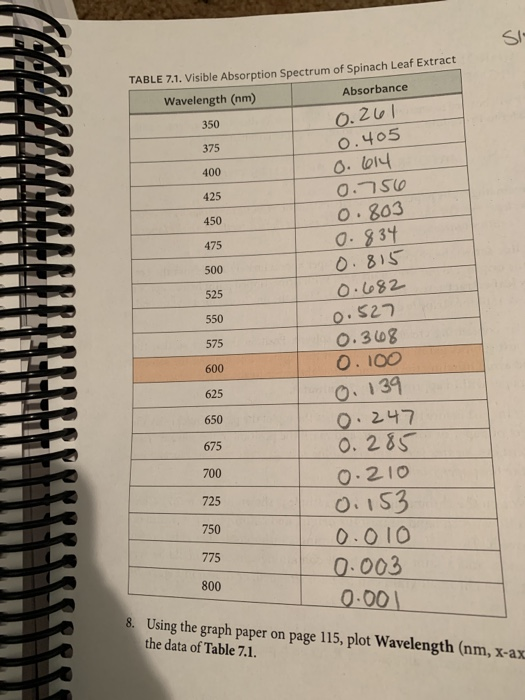 SI
TABLE 7.1. Visible Absorption Spectrum of Spinach Leaf Extract
Wavelength (nm) Absorbance
350 0.261
375 0.405
400 0.614
425 0.756
450 0.803
475 0.834
500 0.815
525 0.682
550 0.527
575 0.368
600 0.100
625 0.139
650 0.247
675 0.285
700 0.210
725 0.153
750 0.010
775 0.003
800 0.001
8. Using the graph paper on page 115, plot Wavelength (nm, x-ax
the data of Table 7.1.